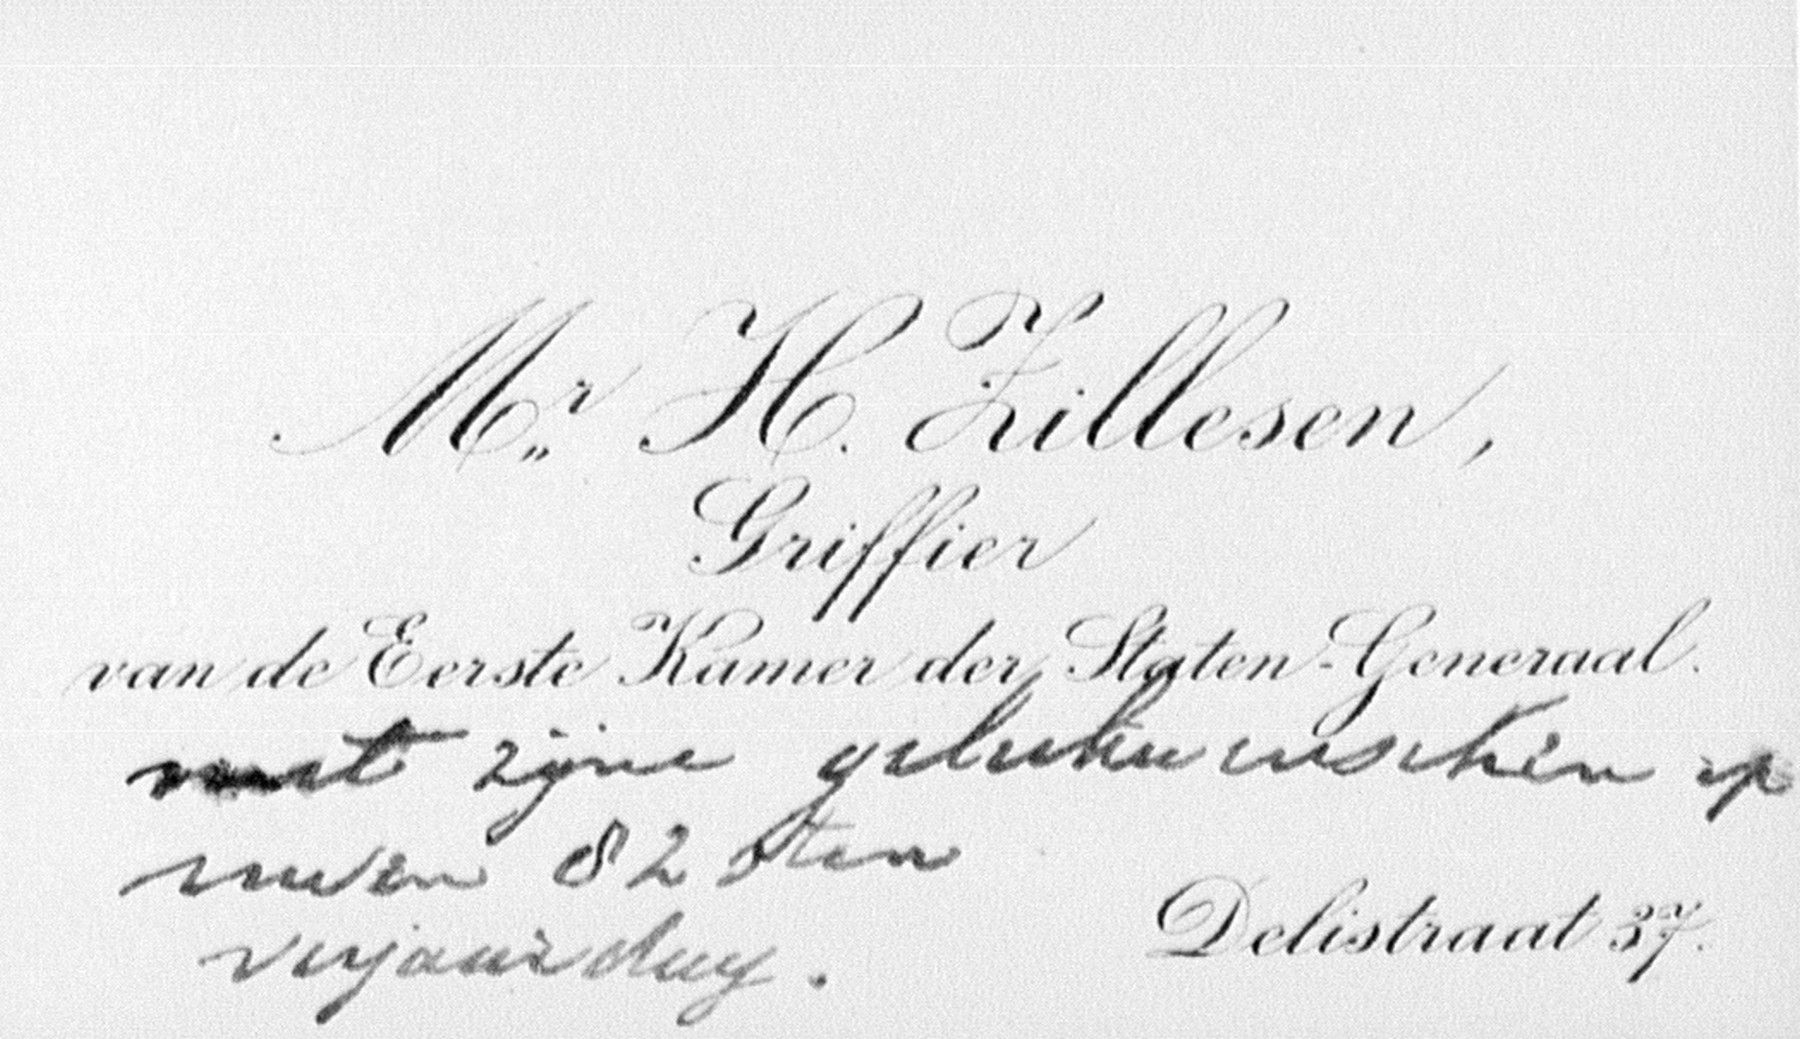 Mr. H. Zillesen,
Griffier
van de Eerste Kamer der Staten-Generaal.
met zijne gelukwenschen op
uwen 82sten
verjaardag.
Delistraat 37.